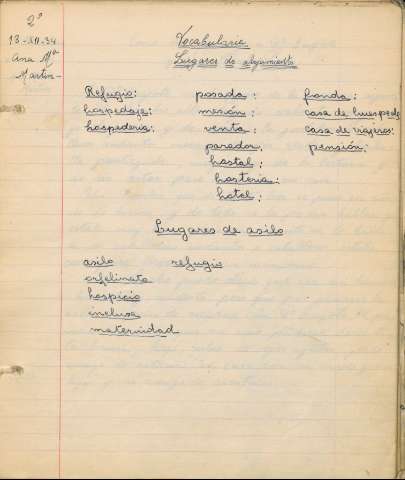 2º
13-XII-34
Ana Mª
Martin-
Vocabulario.
Lugares de alojamiento
Refugio: posada: fonda:
hospedaje: mesón: casa de huespedes
hospederia: venta: casa de viajeros:
parador. pensión:
hostal:
hosteria:
hotel:
Lugares de asilo
asilo refugio
orfelinato
hospicio
inclusa
maternidad